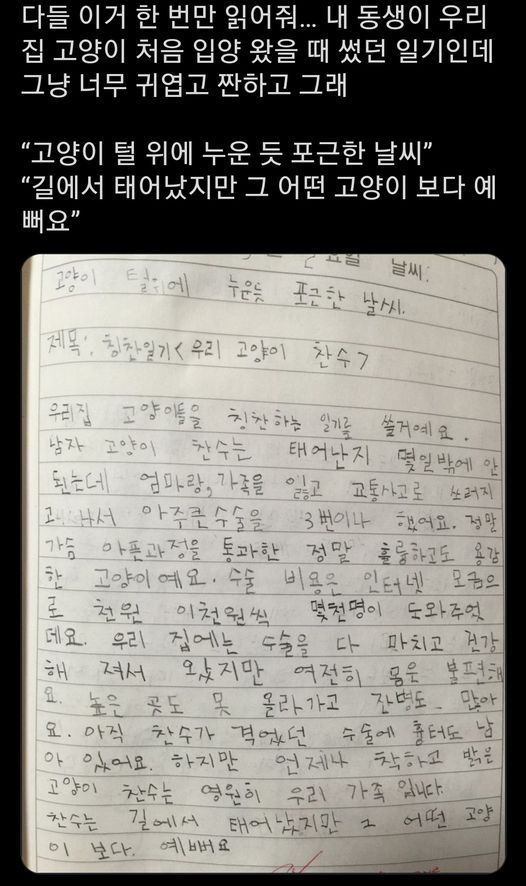 다들 이거 한 번만 읽어줘... 내 동생이 우리
집 고양이 처음 입양 왔을 때 썼던 일기인데
그냥 너무 귀엽고 짠하고 그래
“고양이 털 위에 누운 듯 포근한 날씨”
“길에서 태어났지만 그 어떤 고양이 보다 예
뻐요”
요일 날씨:
고양이 털위에 누운듯 포근한 날씨.
제목: 칭찬일기< 우리 고양이 찬수 >
우리집 고양이들을 칭찬하는 일기를 쓸거예요.
남자 고양이 찬수는 태어난지 몇일밖에 안
됬는데 엄마랑, 가족을 잃고 교통사고로 쓰러지
고 나서 아주큰수술을 3번이나 했어요. 정말
가슴 아픈과정을 통과한 정말 훌륭하고도 용감
한 고양이예요. 수술 비용은 인터넷 모금으
로 천원 이천원씩 몇천명이 도와주었
데요. 우리 집에는 수술을 다 마치고 건강
해 져서 왔지만 여전히 몸은 불편해
요. 높은 곳도 못 올라가고 잔병도 많아
요. 아직 찬수가 격었던 수술에 흉터도 남
아 있어요. 하지만 언제나 착하고 밝은
고양이 찬수는 영원히 우리 가족 입니다.
찬수는 길에서 태어났지만 그 어떤 고양
이 보다. 예뻐요